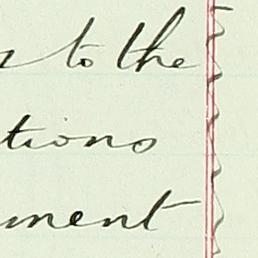 to the
tions
ument